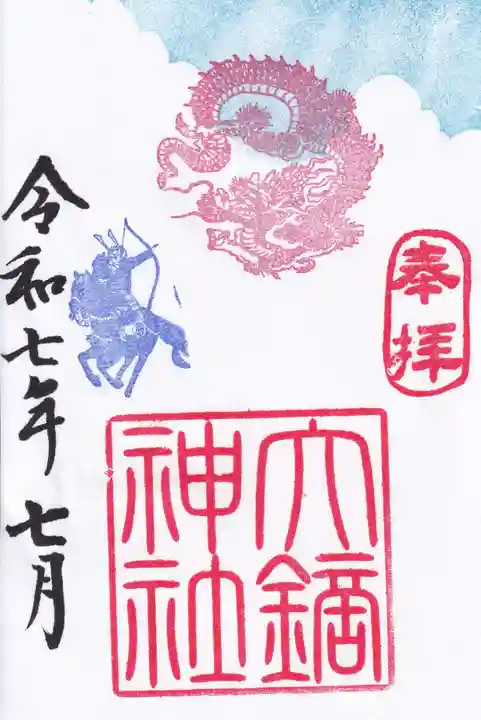 奉拝
大鏑
神社
令和七年七月